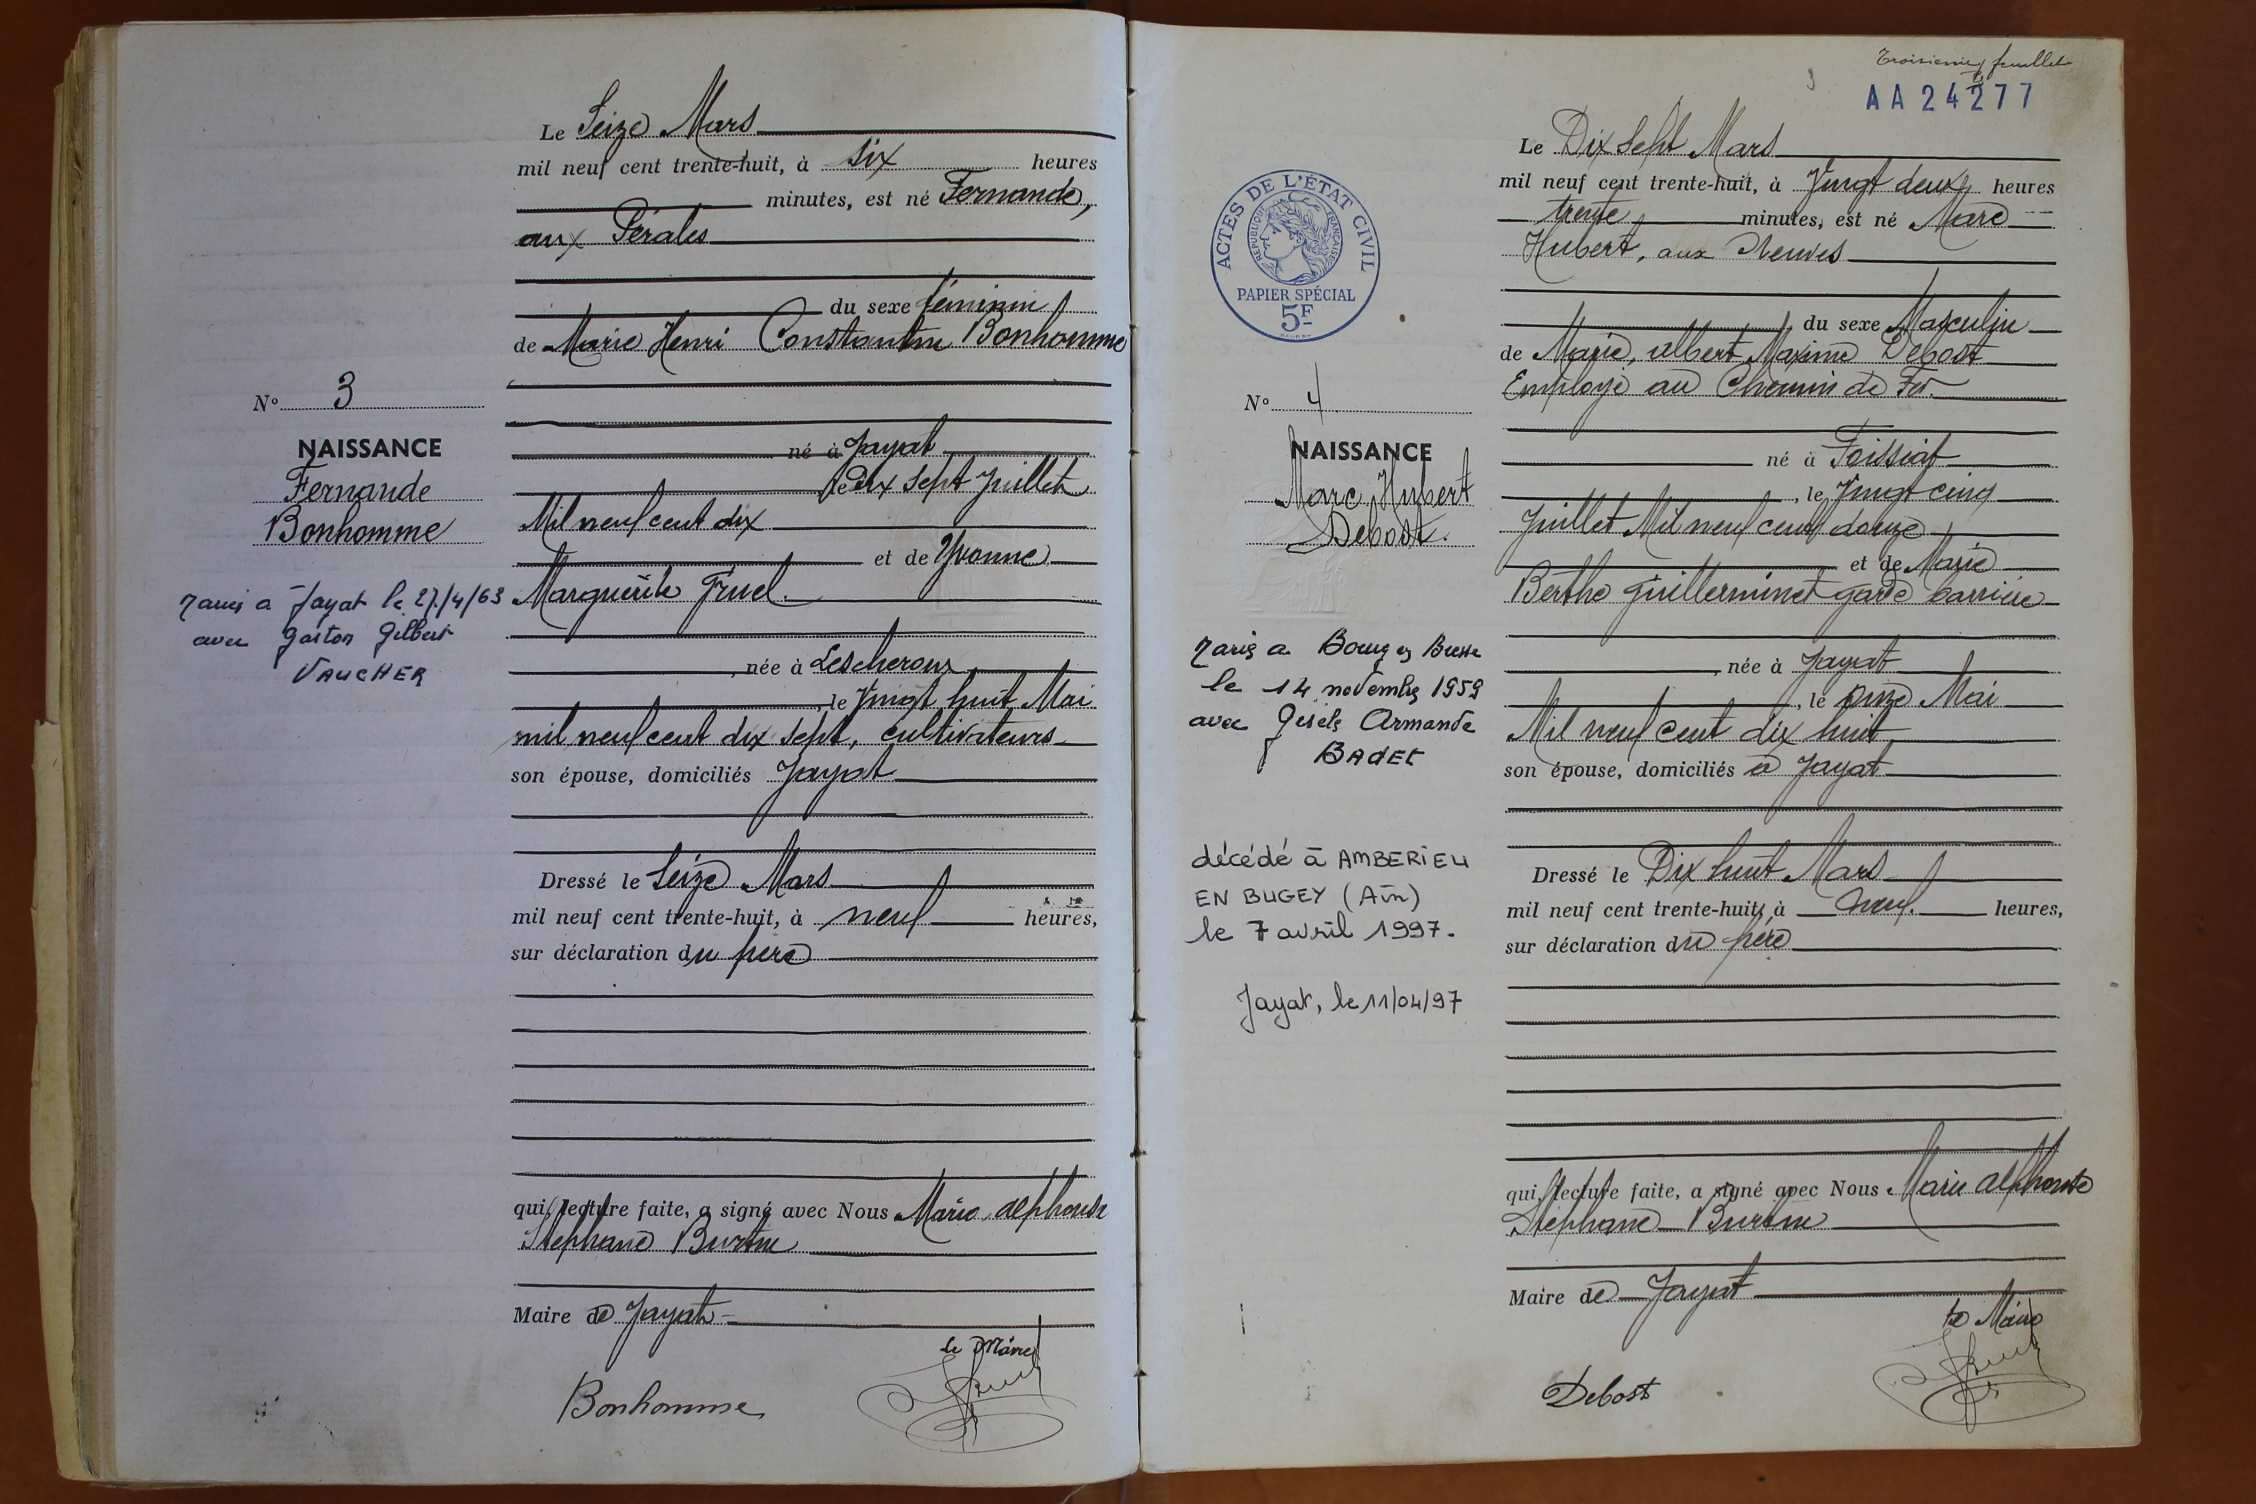 Le Seize Mars
mil neuf cent trente-huit, à six heures
minutes, est né Fernande,
aux Pérales
du sexe féminin
de Marie Henri Constantin Bonhomme
N° 3
NAISSANCE
Fernande
Bonhomme
né à Jayat
le Dix sept Juillet
Mil neuf cent dix
et de Yvonne
Marguerite
mariés a Jayat le 27/4/63
avec Gaston Gilbert
VAUCHER
née à Lescheroux
, le Vingt huit Mai
mil neuf cent dix sept, cultivateurs
son épouse, domiciliés Jayat
Dressé le Seize Mars
mil neuf cent trente-huit, à neuf heures,
sur déclaration du père
qui, lecture faite, a signé avec Nous Marie Alphonse
Stéphane Burtin
Maire de Jayat
le Maire
Bonhomme
Troisième feuillet
AA 24277
Le Dix sept Mars
mil neuf cent trente-huit, à Vingt deux heures
trente minutes, est né Marc
Hubert, aux Neuves
ACTES DE L'ÉTAT CIVIL
RÉPUBLIQUE FRANÇAISE
PAPIER SPÉCIAL
5F
du sexe Masculin
de Marie, Albert Maxime Debost
Employé au Chemin de Fer.
N° 4
NAISSANCE
Marc Hubert
Debost.
né à Foissiat
, le Vingt cinq
Juillet Mil neuf cent douze
et de Marie
Berthe Guilleminet garde barrière
mariés a Bourg en Bresse
le 14 novembre 1959
avec Gisèle Armande
BADET
née à Jayat
, le onze Mai
Mil neuf cent dix huit
son épouse, domiciliés à Jayat
décédé à AMBERIEU
EN BUGEY (Ain)
le 7 avril 1997.
Jayat, le 11/04/97
Dressé le Dix huit Mars
mil neuf cent trente-huit, à neuf. heures,
sur déclaration du père
qui, lecture faite, a signé avec Nous Marie Alphonse
Stéphane Burtin
Maire de Jayat
le Maire
Debost